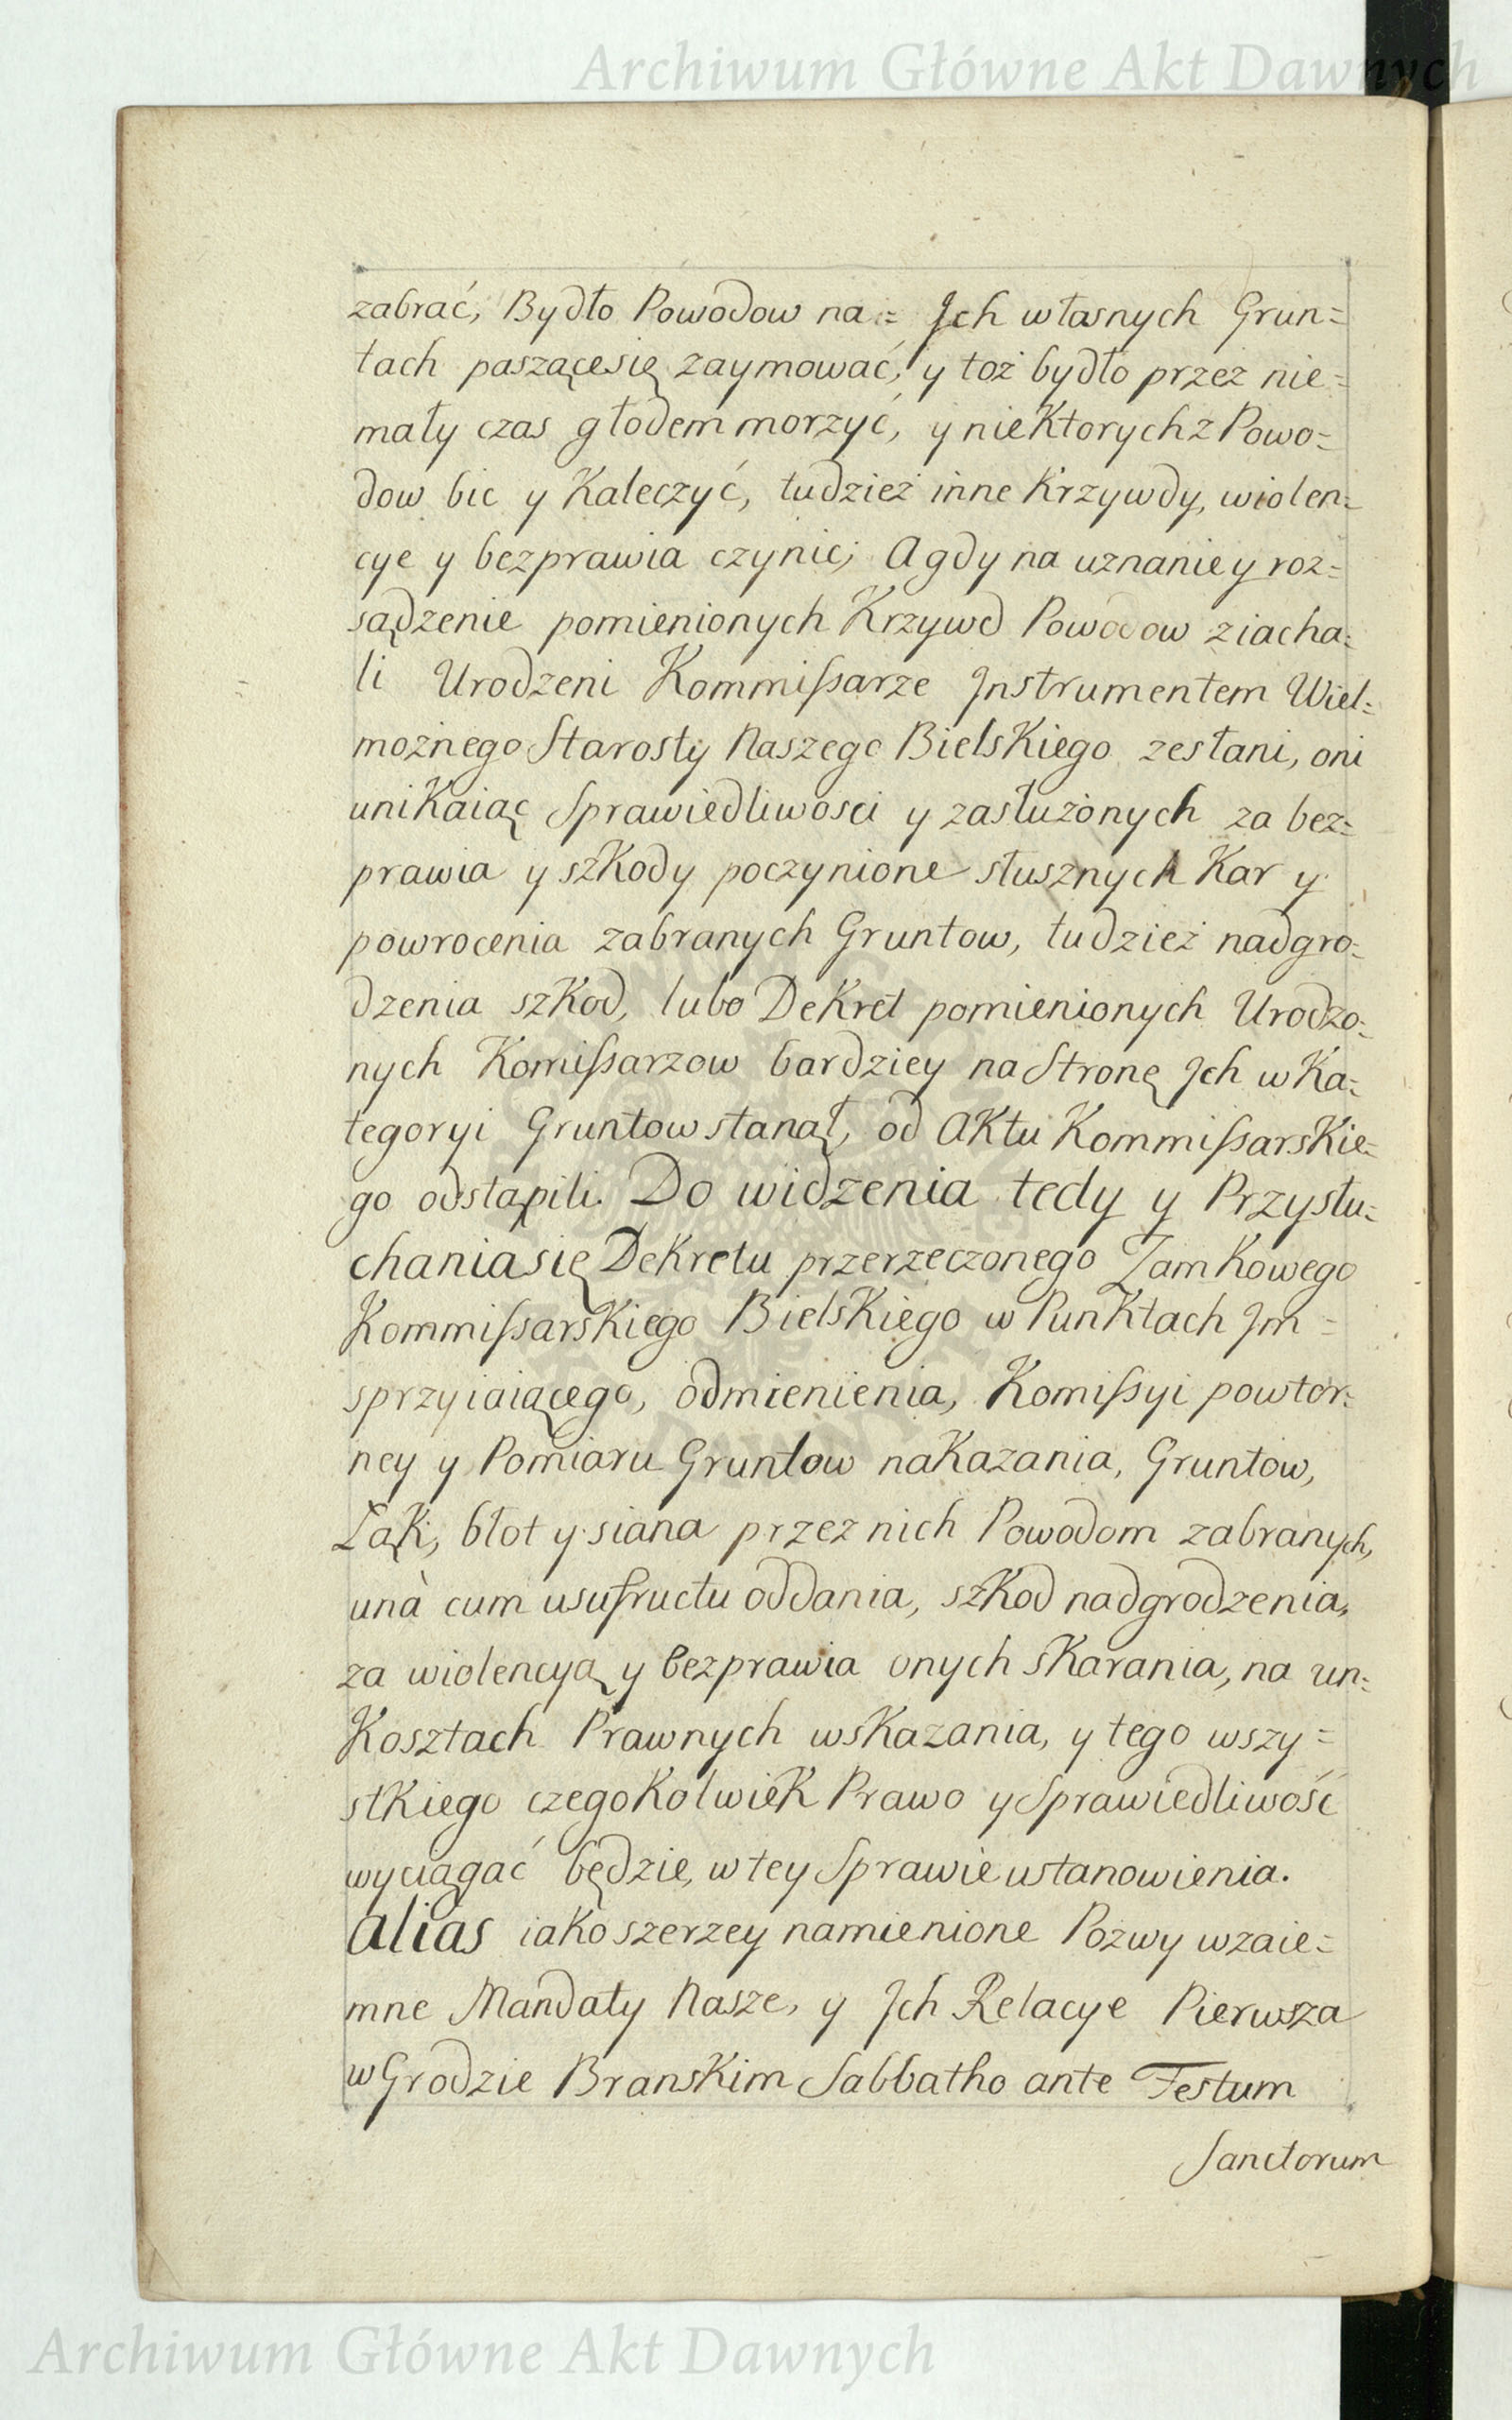 Archiwum Główne Akt Dawnych
zabrać, Bydło Powodow na= Jch własnych Grun=
tach paszącesię zaymować, y toż bydło przez nie=
mały czas głodem morzyć, y nieKtorych z Powo=
dow bic y Kaleczyć, tudzież inne Krzywdy, wiolen=
cye y bezprawia czynic; A gdy na uznanie y roz=
sądzenie pomienionych Krzywd Powodow ziacha=
li Urodzeni Kommissarze Jnstrumentem Wiel=
możnego Starosty Naszego BielsKiego zesłani, oni
uniKaiąc Sprawiedliwosci y zasłużonych za bez=
prawia y szKody poczynione słusznych Kar y
powrocenia zabranych Gruntow, tudzież nadgro=
dzenia szKod, lubo DeKret pomienionych Urodzo=
nych Komissarzow bardziey na Stronę Jch w Ka=
tegoryi Gruntow stanął, od AKtu KommissarsKie=
go odstąpili. Do widzenia tedy y Przysłu=
chania się DeKretu przerzeczonego ZamKowego
KommissarsKiego BielsKiego w PunKtach Jm=
sprzyiaiącego, odmienienia, Komissyi powtor=
ney y Pomiaru Gruntow naKazania, Gruntow,
Łąk, błot y siana przez nich Powodom zabranych,
unà cum usufructu oddania, szKod nadgrodzenia,
za wiolencyą y bezprawia onych sKarania, na un=
Kosztach Prawnych wsKazania, y tego wszy=
stKiego czegoKolwieK Prawo y Sprawiedliwość
wyciągać będzie, w tey Sprawie ustanowienia.
Alias iaKo szerzey namienione Pozwy wzaie=
mne Mandaty Nasze, y Jch Relacye Pierwsza
w Grodzie BransKim Sabbatho ante Festum
Sanctorum
Archiwum Główne Akt Dawnych